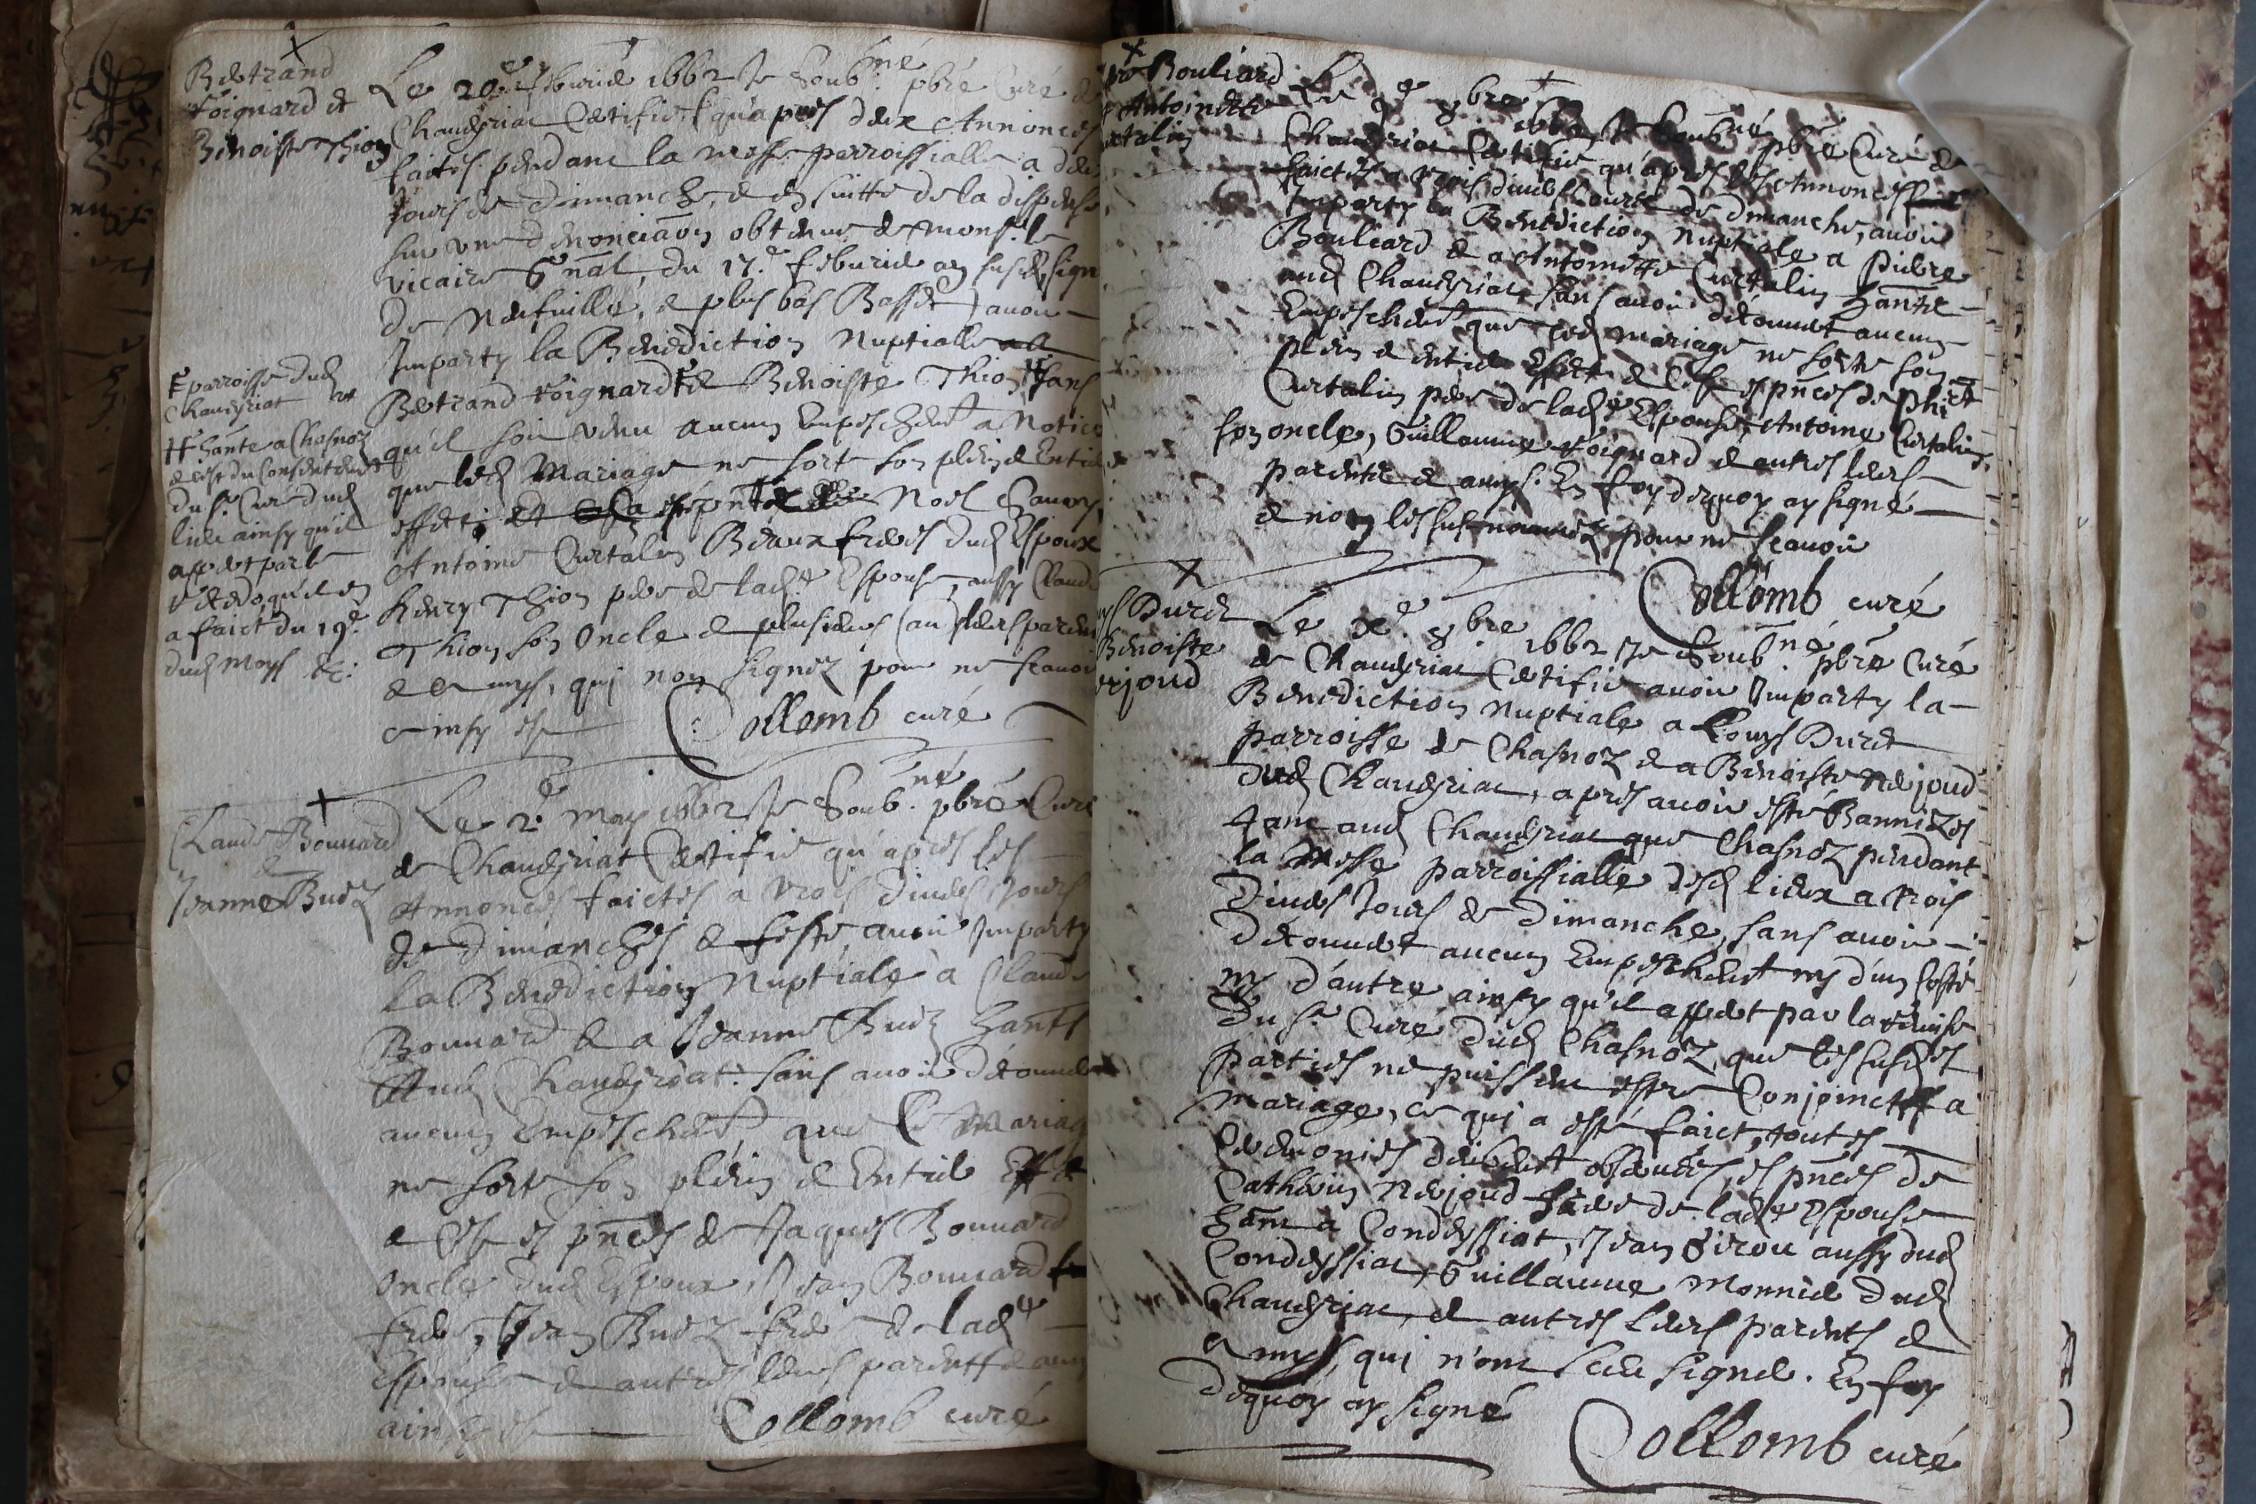 Bertrand
Poignard et
Benoiste Thion
Le 20e feburier 1662 Je Soub.né pbre Curé de
Chaueyriac Certifie qu'apres deux Annonces
faites pendant la messe parroissialle a deux
jours de dimanche, et en suitte de la dispense
sur une denonciaon obtenue de monsr. le
vicaire Gnal, du 17.e feburier an susd. sign
De Neufuille, et plus bas Basset) auoir
Imparty la Benediction Nuptialle
Bertrand Poignard et Benoiste Thion sans
qu'il soit venu aucun Empeschemt a Notice
que led Mariage ne sorte son plein et Entier
effect, Noel
Antoine Curtalin Beaux freres dud Espoux
Henry Thion pere de lad.e Espouse, aussy Claude
Thion son Oncle et plusieurs (au) leurs parens
et amys, qui non signez pour ne scauoir
ainsy est Collomb curé
parroisse dud
Chaueyriat
hante a Chasnoz
et ce du Consentement
du sr. Curé dud
lieu ainsy qu'il
appert par le
qu'il en
a faict du 19e
dud Moys &c:
Claude Bouuard
&
Jeanne Budz
Le 2.e may 1662 Je Soub.né pbre Curé
de Chaueyriat Certifie qu'apres les
Annonces faictes a trois diuers Jours
de Dimanches et feste, auoir Imparty
la Benediction Nuptiale a Claude
Bouuard et a Jeanne Budz hants
Aud Chaueyriat: sans auoir decouuert
aucun Empeschemt, que le Mariage
ne sorte son plein et Entier Effet
et Ce es pnces de Jaques Bouuard
Oncle dud Espoux, Jean Bouuard
frere, Jean Budz frere de lad.e
Espouse et autres leurs parents et amys
ainsy est Collomb curé
Bouliard
Antoinette
Curtalin
Le 9e 8bre 1662 Je Soub.né pbre Curé de
Chaueyriac Certifie qu'apres les Annonces
faictes a trois diuers Jours de dimanche, auoir
Imparty la Benediction Nuptiale a Pierre
Bouliard et a Antoinette Curtalin hants
aud Chaueyriac, sans auoir decouuert aucun
Empeschemt que led mariage ne sorte son
plein et entier Effect et Ce es pnces de
Curtalin pere de lad.e Espouse, Antoine Curtalin
son oncle, Guillaume Poignard et autres leurs
parents et amys. En foy dequoy ay signé
et non les susnommez pour ne scauoir
Collomb curé
Louys Duret
Benoiste
Nerjoud
Le Xe. 8bre 1662 Je Soub.né pbre Curé
de Chaueyriac Certifie auoir Imparty la
Benediction Nuptiale a Louys Duret
parroisse de Chasnoz et a Benoiste Nerjoud
dud Chaueyriac, apres auoir esté Bannizes
tant aud Chaueyriac que Chasnoz pendant
la Messe parroissialle desd lieux a trois
diuers Jours de Dimanche, sans auoir
decouuert aucun Empeschemt ny d'un costé
ny d'autre ainsy qu'il appert par la remise
du sr. Curé dud Chasnoz, que les susd.es
parties ne puissent estre Conjoinctes a
mariage, ce qui a esté faict, toutes
Ceremonies deubemt obseruées, es pnces de
Catherin Nerjoud frere de lad.e Espouse
hant a Condeyssiat, Jean Girou aussy dud
Condeyssiac, Guillaume Monnier dud
Chaueyriac, et autres leurs parents et
amys, qui n'ont sceu signer. En foy
dequoy ay signé
Collomb curé